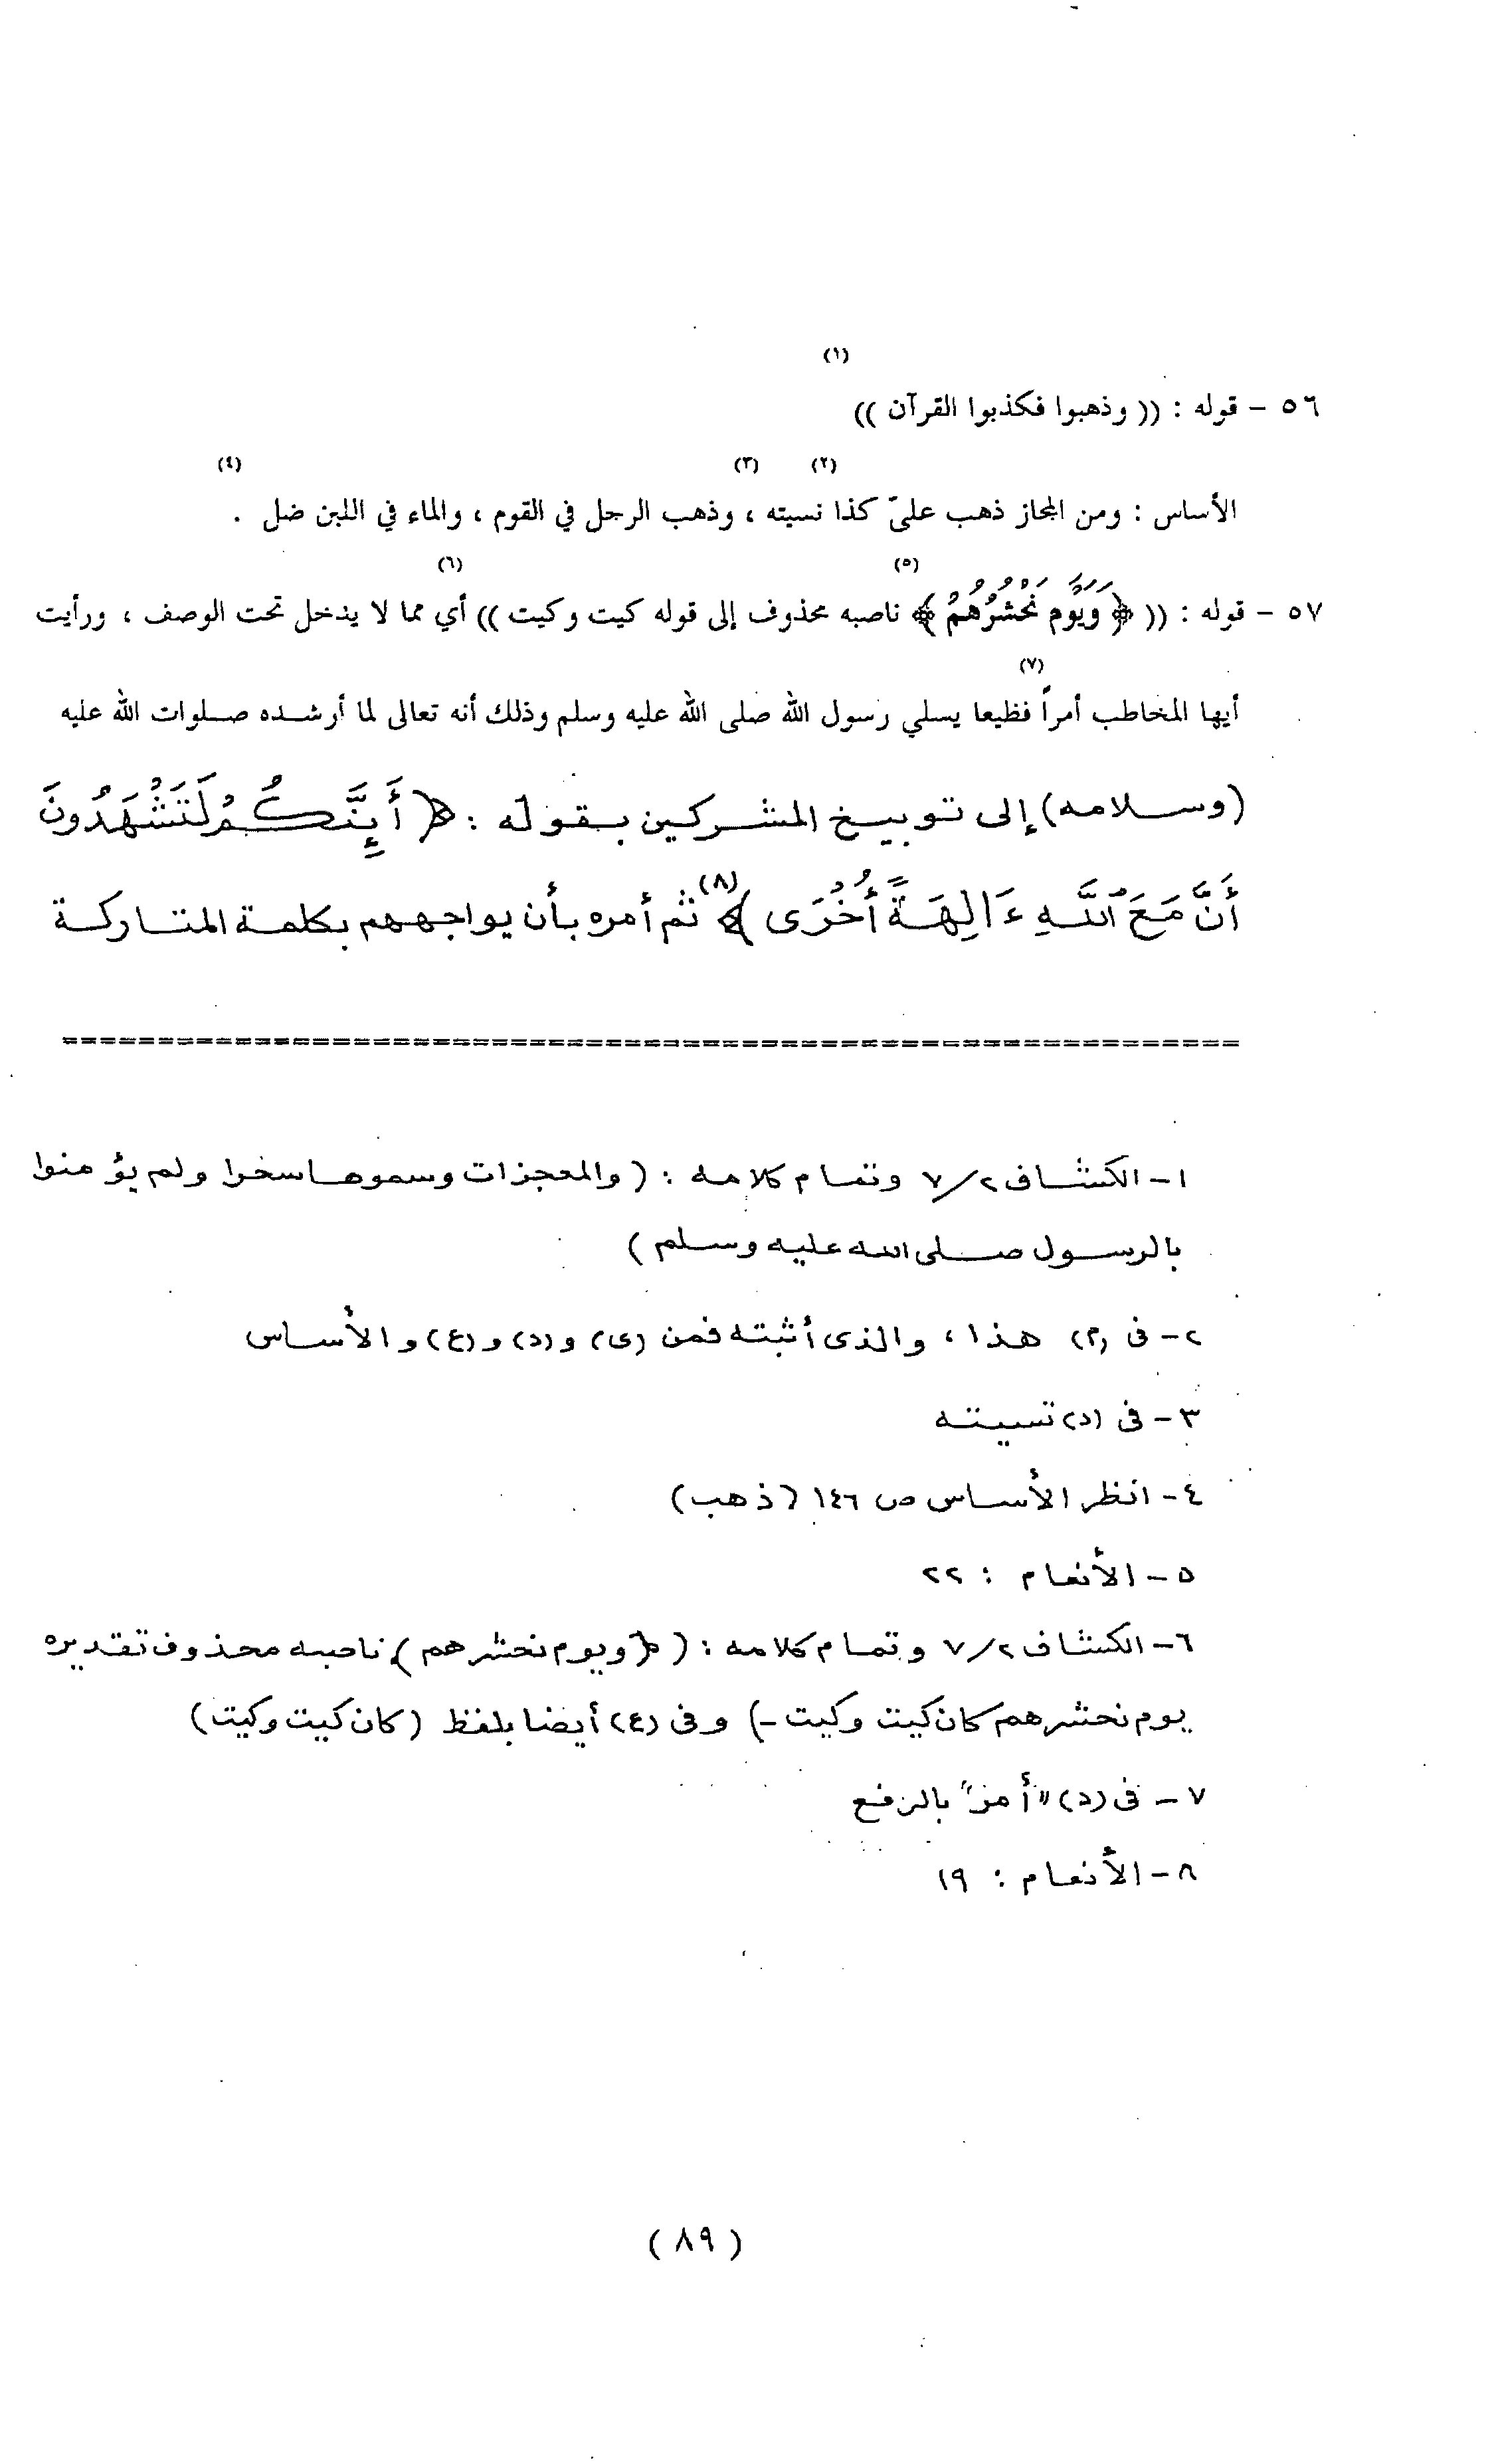 (١)
٥٦ - قوله : (( وذهبوا فكذبوا القرآن ))
(٢) (٣) (٤)
الأساس : ومن المجاز ذهب عليّ كذا نسيته ، وذهب الرجل في القوم ، والماء في اللبن ضل .
(٥) (٦)
٥٧ - قوله : (( ﴿ وَيَوْمَ نَحْشُرُهُمْ ﴾ ناصبه محذوف إلى قوله كيت وكيت )) أي مما لا يدخل تحت الوصف ، ورأيت
(٧)
أيها المخاطب أمراً فظيعا يسلي رسول الله صلى الله عليه وسلم وذلك أنه تعالى لما أرشده صلوات الله عليه
(وسلامه) إلى توبيخ المشركين بقوله : ﴿ أَئِنَّكُمْ لَتَشْهَدُونَ
أَنَّ مَعَ ٱللَّهِ ءَالِهَةً أُخْرَى ﴾ (٨) ثم أمره بأن يواجههم بكلمة المتاركة
==========================================================
١- الكشاف ٧/٢ وتمام كلامه : ( والمعجزات وسموها سحرا ولم يؤمنوا
بالرسول صلى الله عليه وسلم )
٢- فى (م) هذا ، والذى أثبته فمن (ى) و(د) و(ع) والأساس
٣- فى (د) تسيته
٤- انظر الأساس ص ١٤٦ (ذهب)
٥- الأنعام : ٢٢
٦- الكشاف ٧/٢ وتمام كلامه : ( ﴿ ويوم نحشرهم ﴾ ناصبه محذوف تقديره
يوم نحشرهم كان كيت وكيت -) وفى (ع) أيضا بلفظ (كان كيت وكيت)
٧- فى (د) "أمر" بالرفع
٨- الأنعام : ١٩
( ٨٩ )